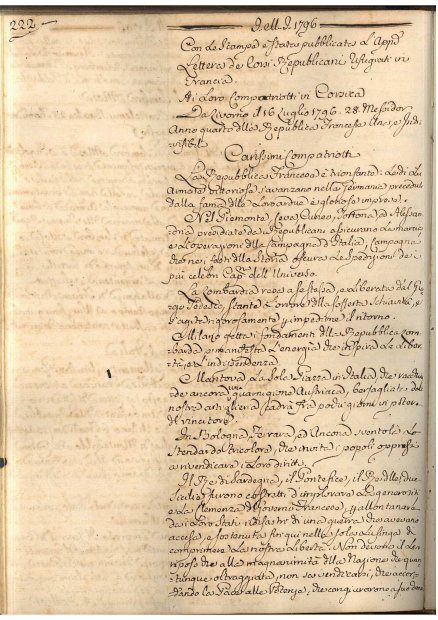 222
J.M.J. 1796
Con le Stampe è stata pubblicata l'app.
Lettera de Corsi Repubblicani rifugiati in
Francia.
Ai Loro Compatriotti in Corsica
Da Livorno il 16 Luglio 1796. 28. Messidor
Anno quarto della Repubblica Francese Una, e Indi
visibile
Carissimi Compatriotti
La Repubblica Francese è trionfante: Le di Lei
Armate vittoriose s'avanzano nella Germania precedute
dalla fama delle Loro ardue e gloriose imprese.
Nel Piemonte, Ceva, Cuneo, Tortona, ed Alessan-
dria presidiate da Repubblicani assicurano la marcia
e l'operazioni della Campagna d'Italia, Campagna
che ne' fasti della Storia oscura le spedizioni de
più celebri Cap. dell'Universo.
La Lombardia resa a se stessa, e liberata dal
Tedesco, stante l'orrore della sofferta Schiavitù, e
s'agita vigorosamente p. impedirne il ritorno.
Milano getta i fondamenti della Repubblica Lom-
barda, e manifesta l'energia che inspira la Liber-
tà, e l'indipendenza.
Mantova la sola Piazza in Italia, che racchiu-
de ancora una guarnigione Austriaca, bersagliata dal
nostra artiglieria cadrà fra pochi giorni in potere
de Vincitori.
In Bologna, Ferrara, ed Ancona sventola lo
Stendardo tricolore, che invita i popoli oppressi
a rivendicare i loro diritti.
Il Re di Sardegna, il Pontefice, il Re delle due
Sicilie furono costretti d'implorare la generosità
e la clemenza del Governo Francese, p. allontanare
dai Loro Stati i disastri d'una guerra che avevano
accesa, e sostenuta fin qui nella sola lusinga di
comprimere la nostra Libertà. Non devesi il Lor
riposo che alla magnanimità della Nazione che quan-
tunque oltraggiata, non sa vendicarsi, che accor-
dando la Pace alle Potenze, che congiurarono a suo danno